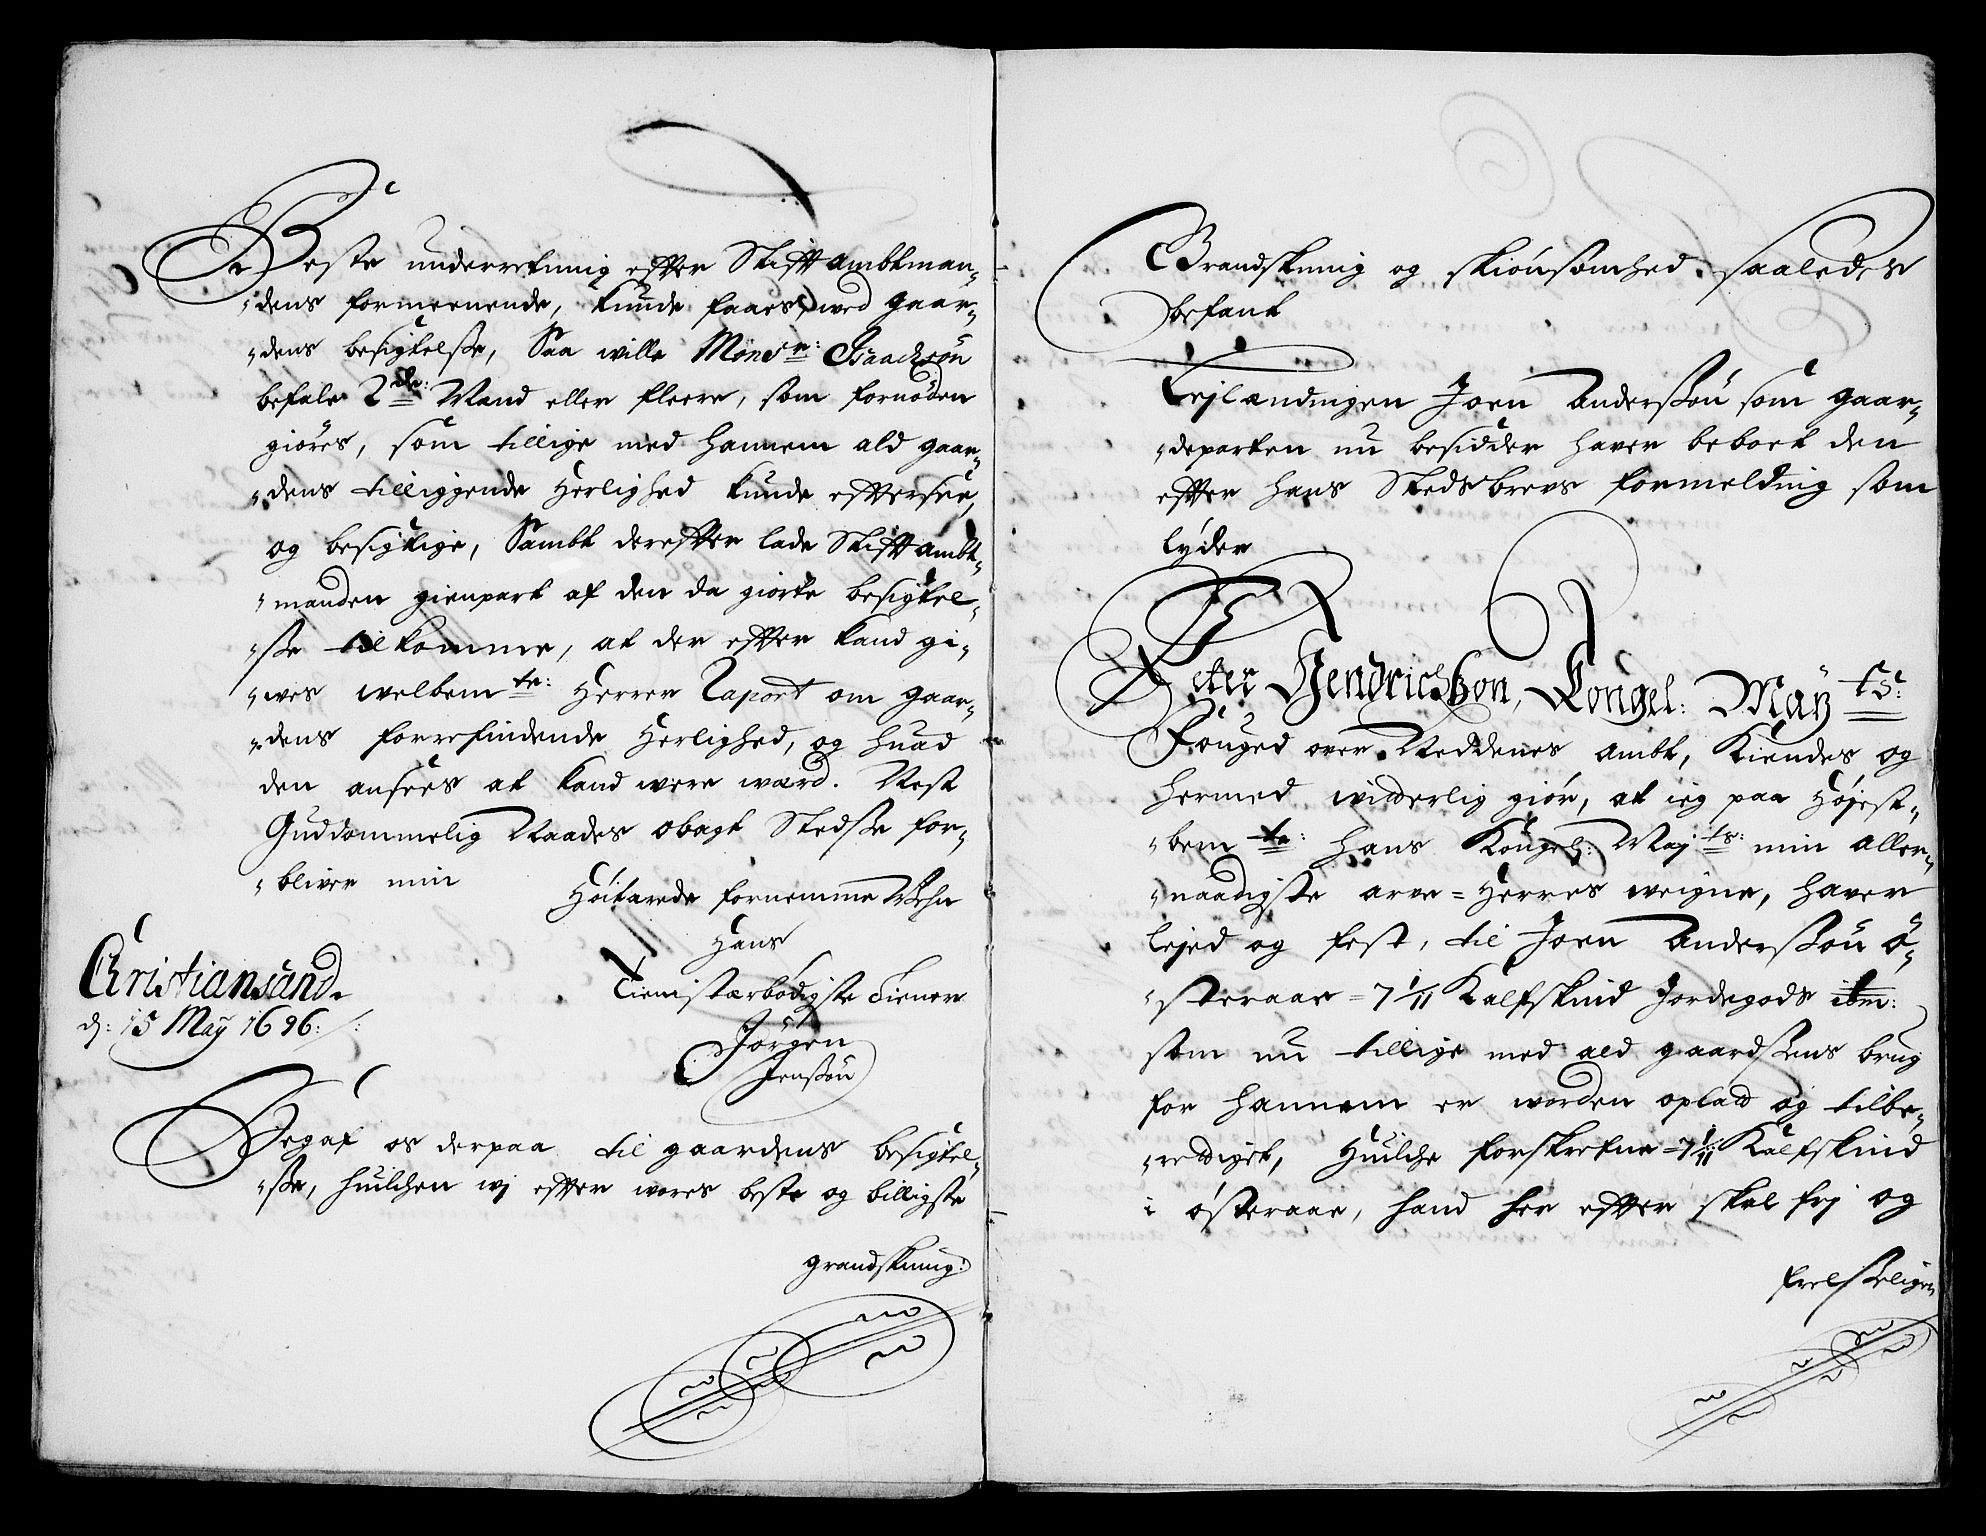 Beste underretning efter Stiftambtman-
dens formeenende, kunde faaes, ved gaar-
dens besigtelsse, Saa wille Mons:r Isaachsøn
befale 2:de Mand eller fleere, som fornøden
giøres, som tillige med hannem ald gaar-
dens tilliggende Herlighed kunde eftersee,
og besigtige, Sambt derefter lade Stiftambt-
manden gienpart af den da giorte besigtel-
sse tilkomme, at der efter kand gi-
ves velbem:te Herrer Raport om gaar-
dens forrefindende Herlighed, og huad
den ansees at kand were werd. Nest
Guddommelig Naades obagt Stedsse for-
bliver min
Høitærede fornemme Wehn
Hans
Tienistærbødigste Tiener
Jørgen
Jenssøn
Christiansand.
d: 15 Maÿ 1696:
Begaf os derpaa til gaardens besigtel-
sse, huilchen wj efter wores beste og billigste
grandskning:
Grandskning og skiønsomhed saaledes
befant
Leilændingen Joen Anderssøn som gaar-
departen nu besidder haver beboet den
efter hans Stedsbrevs formelding som
lyder
Peter Hendrichsson, Kongel: Maÿ:ts
Fouged over Neddenes ambt, Kiendes og
hermed witterlig giør, at ieg paa Høiest-
bem:te hans Kongel: Maj:ts min aller-
naadigste arve-Herres weigne, haver
lejed og fest, til Joen Anderssøn Ø-
steraae 7 1/11 Kalfskind Jordegods
som nu tillige med ald gaardssens brug
for hannem er worden oplad og tilbe-
rediget, Huilche forskrefne 7 1/11 Kalfskind
i østeraae, hand her efter skal frj og
frelsseligen